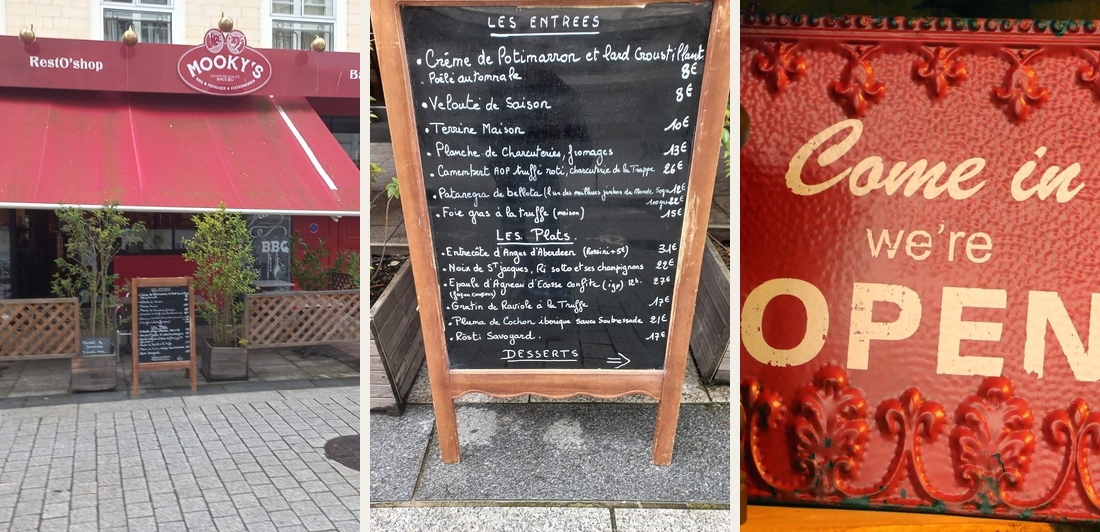 RestO'shop
MOOKY'S
BBQ
LES ENTREES
• Crème de Potimarron et lard Croustillant
Poêlé automnale 8€
• Velouté de Saison 8€
• Terrine Maison 10€
• Planche de Charcuteries, fromages 13€
• Camembert AOP truffé roti, charcuterie de la Trappe 26€
• Patanegra de bellota (l'un des meilleurs jambon du Monde
• Foie gras à la truffe (maison) 15€
LES PLATS.
• Entrecôte d'Angus d'Aberdeen (Rossini +5€) 31€
• Noix de St jacques, Risotto et ses champignons 22€
• Epaule d'Agneau d'Ecosse confite (igp) 12h. 27€
• Gratin de Raviole à la Truffe 17€
• Pluma de Cochon iberique sauce Soubressade 21€
• Rösti Savoyard. 17€
DESSERTS
Come in
we're
OPEN